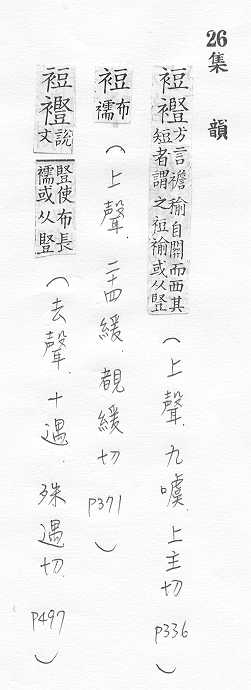 26集　韻
裋䜿方言襜褕自關而西其短者謂之裋褕或从豎（上聲．九噳．上主切 P336）
裋布襦（上聲．二十四緩．覩緩切 P371）
裋說文豎使布長襦或从豎（去聲．十遇．殊遇切．P497）